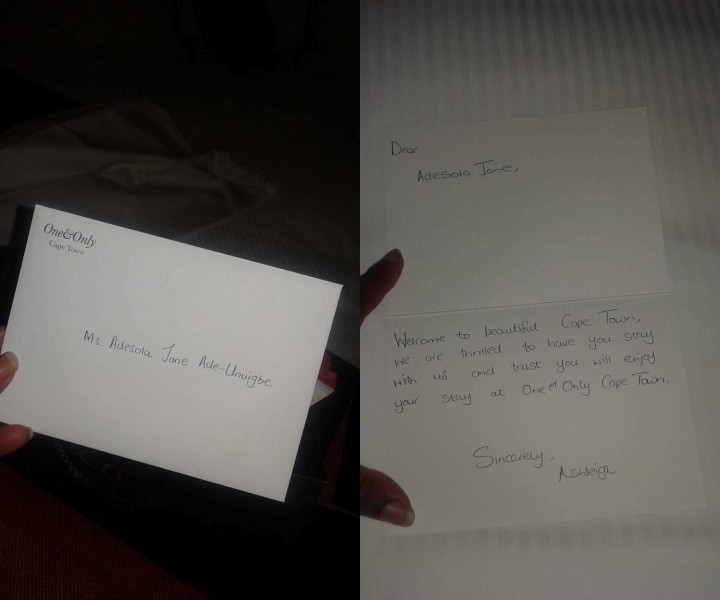 One&Only
Cape Town
Ms. Adesola Jane Ade-Unuigbe
Dear
Adesola Jane,
Welcome to beautiful Cape Town,
we are thrilled to have you stay
with us and trust you will enjoy
your stay at One & Only Cape Town.
Sincerely.
Ashleigh